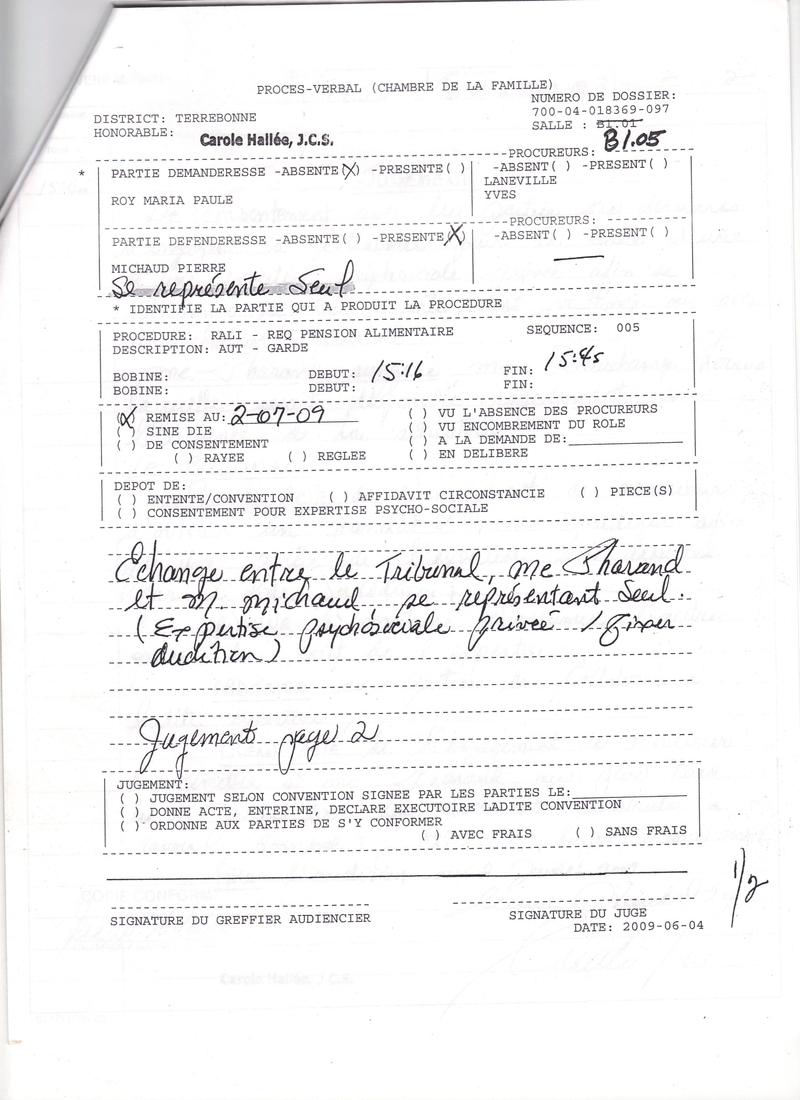 PROCES-VERBAL (CHAMBRE DE LA FAMILLE)
NUMERO DE DOSSIER:
700-04-018369-097
DISTRICT: TERREBONNE
SALLE : B1.01 B1.05
HONORABLE: Carole Hallée, J.C.S.
PROCUREURS:
* PARTIE DEMANDERESSE -ABSENTE(X) -PRESENTE( ) -ABSENT( ) -PRESENT( )
LANEVILLE
ROY MARIA PAULE YVES
PROCUREURS:
PARTIE DEFENDERESSE -ABSENTE( ) -PRESENTE(X) -ABSENT( ) -PRESENT( )
MICHAUD PIERRE
Se représente Seul
* IDENTIFIE LA PARTIE QUI A PRODUIT LA PROCEDURE
PROCEDURE: RALI - REQ PENSION ALIMENTAIRE SEQUENCE: 005
DESCRIPTION: AUT - GARDE
BOBINE: DEBUT: 15:16 FIN: 15:45
BOBINE: DEBUT: FIN:
(X) REMISE AU: 2-07-09 ( ) VU L'ABSENCE DES PROCUREURS
( ) SINE DIE ( ) VU ENCOMBREMENT DU ROLE
( ) DE CONSENTEMENT ( ) A LA DEMANDE DE:
( ) RAYEE ( ) REGLEE ( ) EN DELIBERE
DEPOT DE:
( ) ENTENTE/CONVENTION ( ) AFFIDAVIT CIRCONSTANCIE ( ) PIECE(S)
( ) CONSENTEMENT POUR EXPERTISE PSYCHO-SOCIALE
Echange entre le Tribunal, me Pharand
et M. michaud, se représentant Seul.
(Expertise psychosociale privée / fixer
audition)
Jugement page 2
JUGEMENT:
( ) JUGEMENT SELON CONVENTION SIGNEE PAR LES PARTIES LE:
( ) DONNE ACTE, ENTERINE, DECLARE EXECUTOIRE LADITE CONVENTION
( ) ORDONNE AUX PARTIES DE S'Y CONFORMER
( ) AVEC FRAIS ( ) SANS FRAIS
1/2
SIGNATURE DU GREFFIER AUDIENCIER SIGNATURE DU JUGE
DATE: 2009-06-04